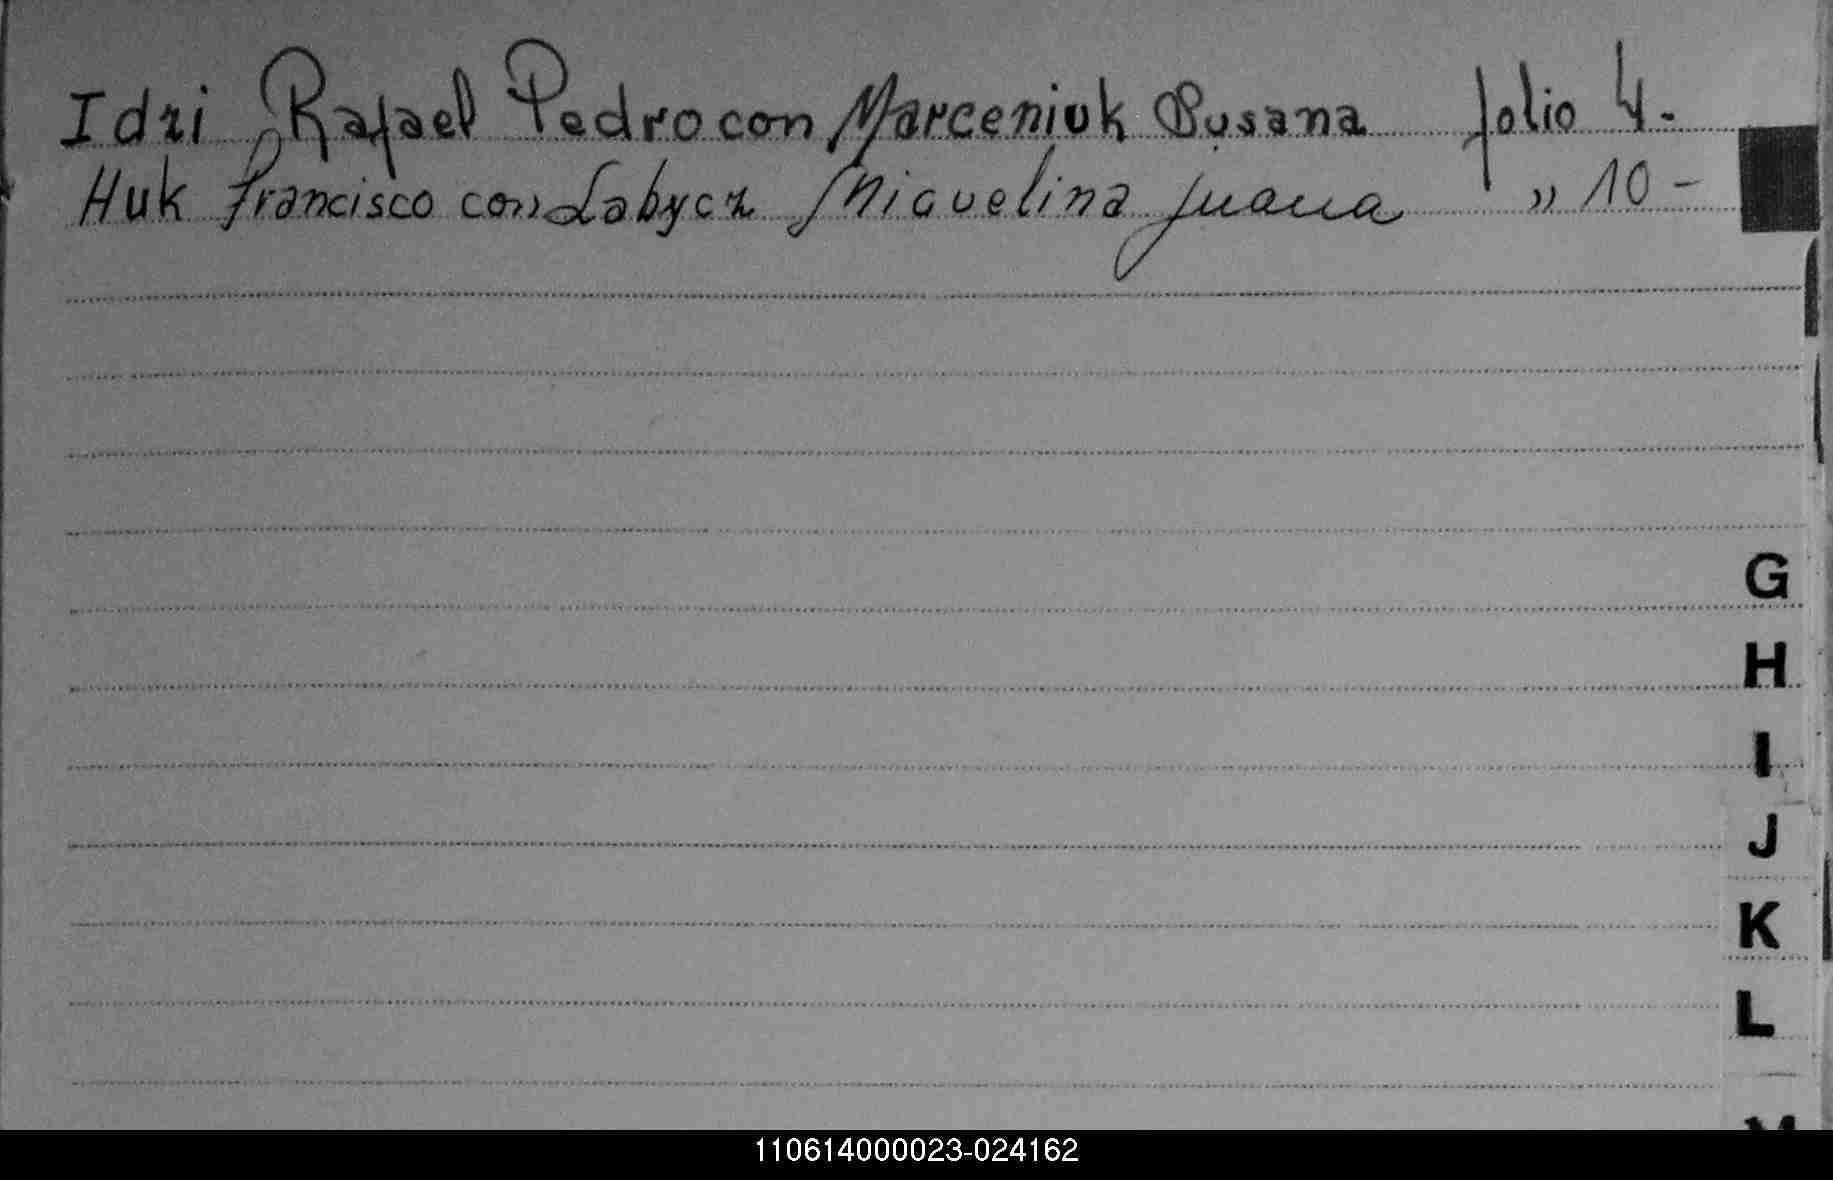 Idzi Rafael Pedro con Marceniuk Susana folio 4.
Huk francisco con Labycz Miquelina Juana " 10 -
G
H
I
J
K
L
M
110614000023-024162